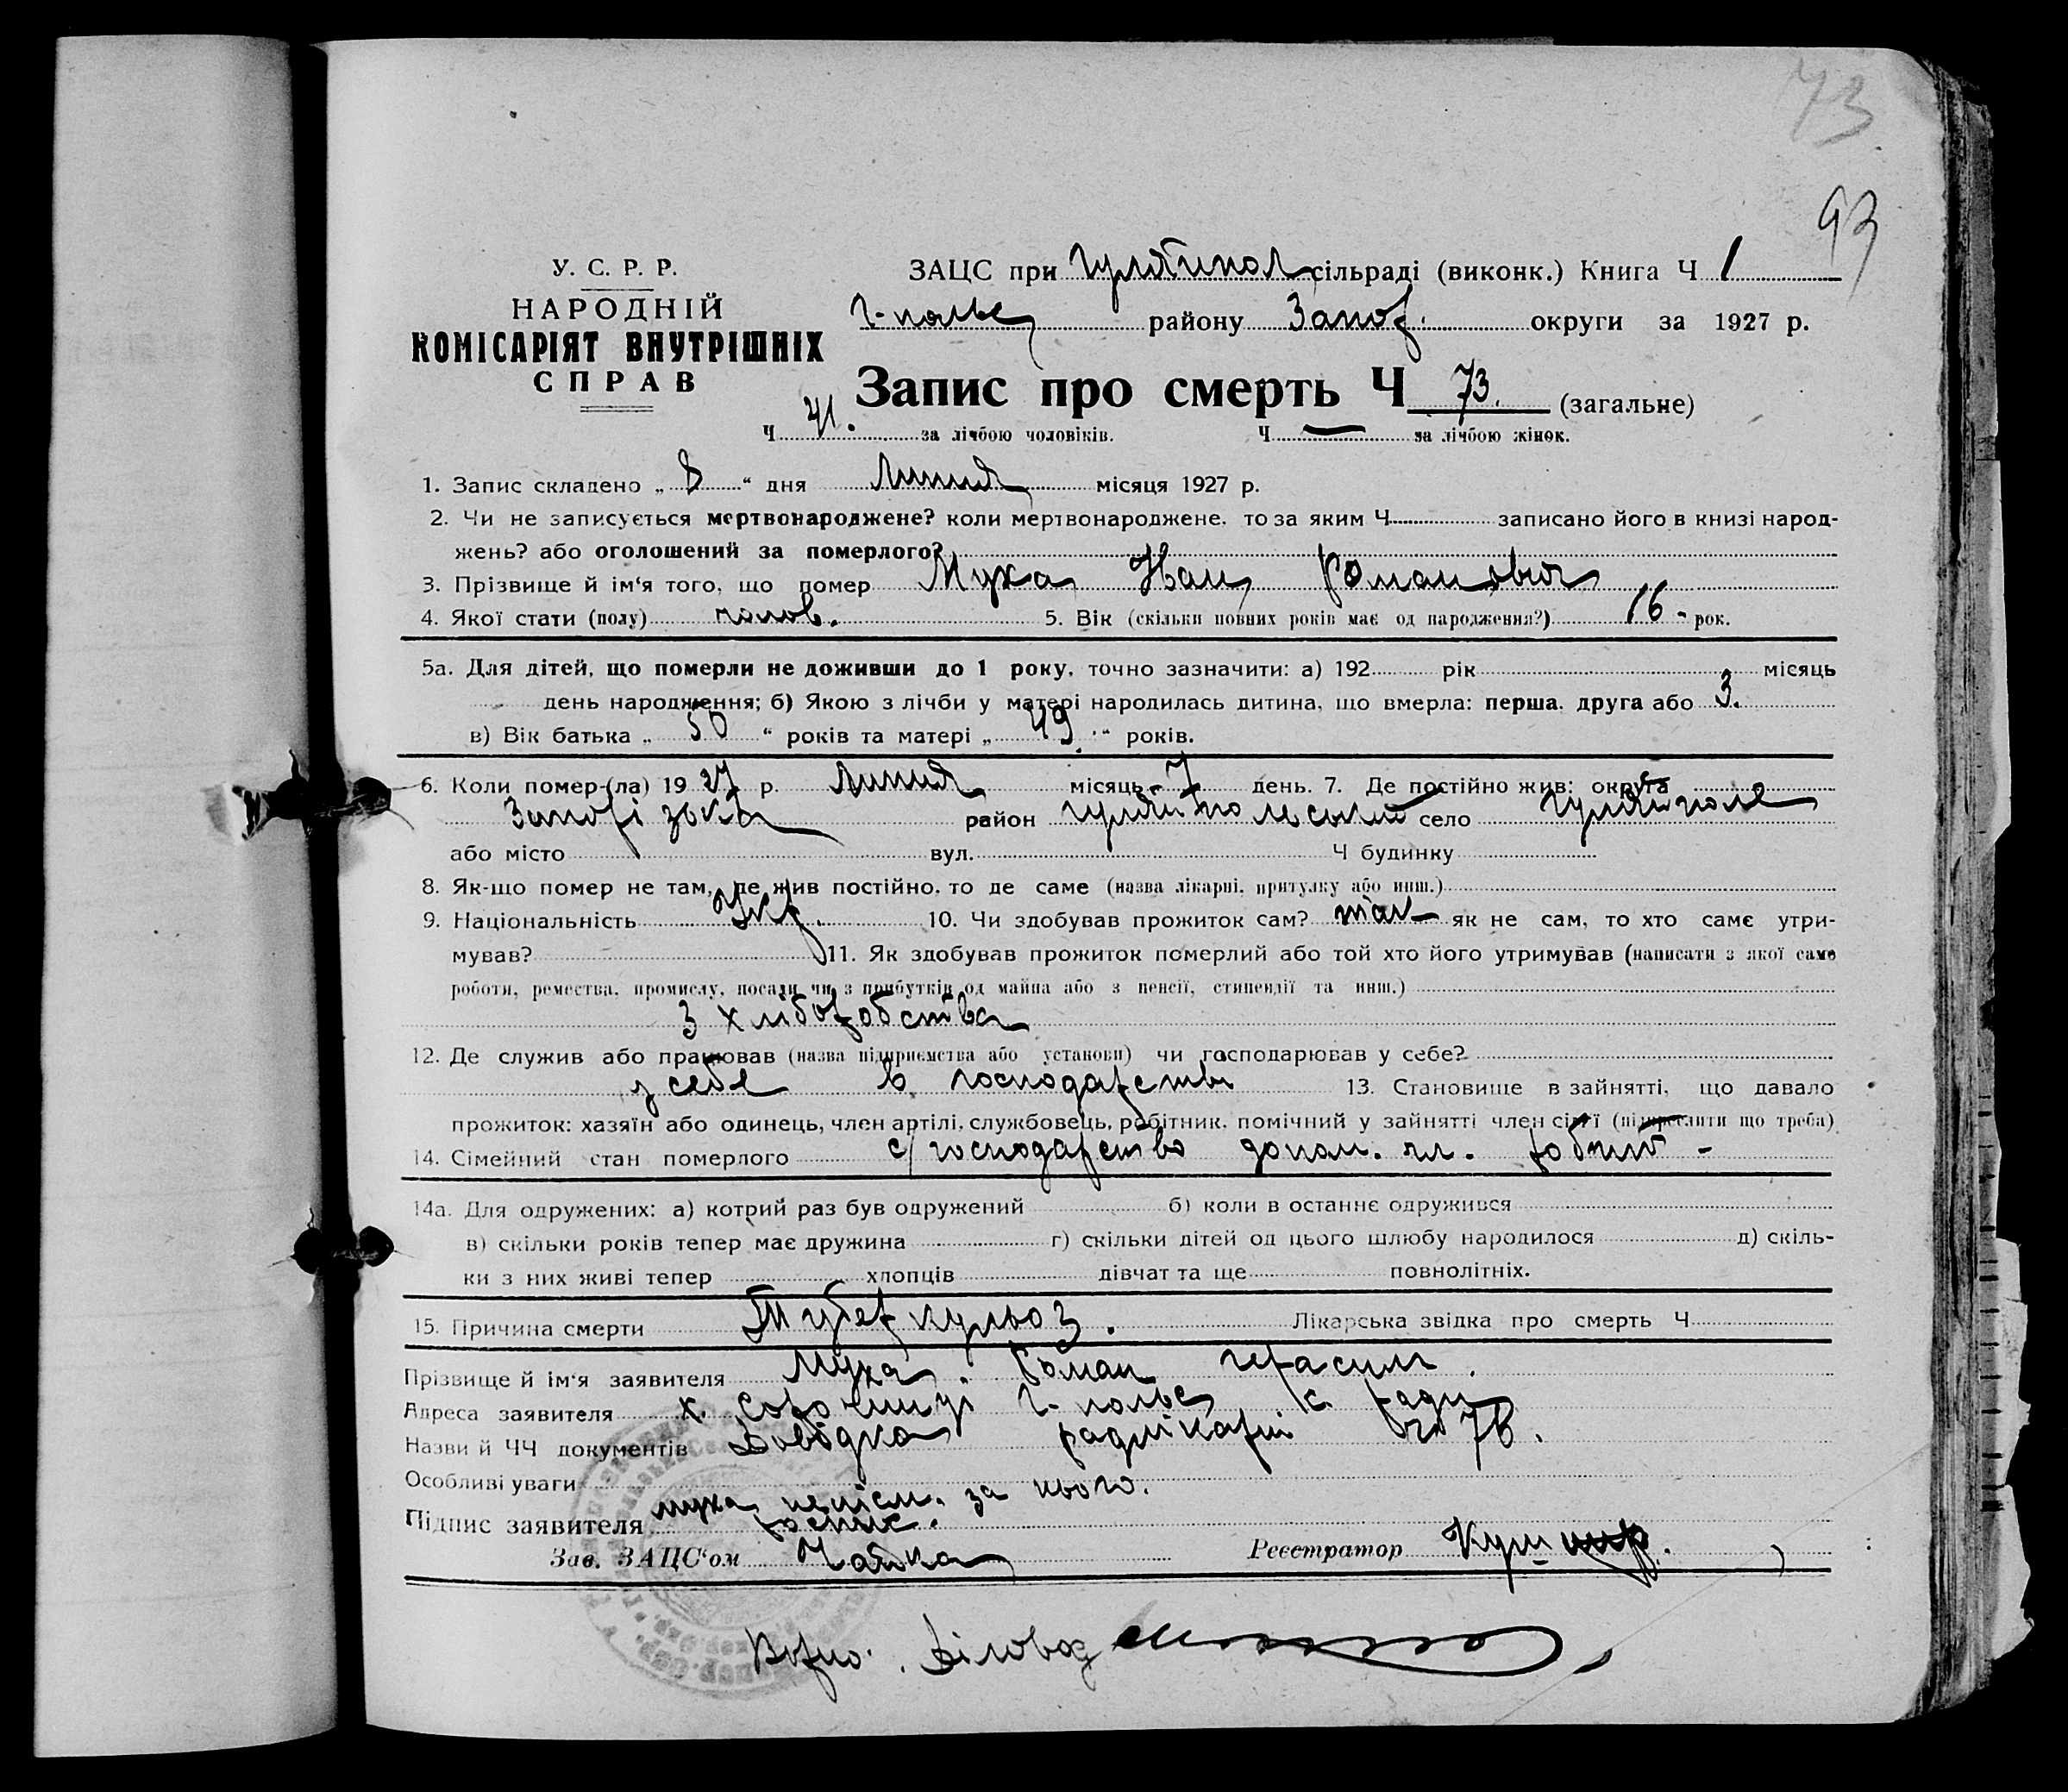 73
93
У. С. Р. Р.
НАРОДНІЙ
КОМІСАРІЯТ ВНУТРІШНІХ
СПРАВ
ЗАЦС при Гуляйпол сільраді (виконк.) Книга Ч 1
Г-польс району Запор. округи за 1927 р.
Запис про смерть Ч 73. (загальне)
Ч 41. за лічбою чоловіків. Ч — за лічбою жінок.
1. Запис складено „ 8 “ дня липня місяця 1927 р.
2. Чи не записується мертвонароджене? коли мертвонароджене, то за яким Ч записано його в книзі народ-
жень? або оголошений за померлого?
3. Прізвище й ім‘я того, що помер Муха Іван Романович
4. Якої стати (полу) чолов. 5. Вік (скільки повних років має од народження?) 16 - рок.
5а. Для дітей, що померли не доживши до 1 року, точно зазначити: а) 192 рік місяць
день народження; б) Якою з лічби у матері народилась дитина, що вмерла: перша, друга або 3.
в) Вік батька „ 50 “ років та матері „ 49 “ років.
6. Коли помер-(ла) 19 27 р. липня місяць 7 день. 7. Де постійно жив: округа
Запорізька район Гуляйпольський село Гуляйполе
або місто вул. Ч будинку
8. Як-що помер не там, де жив постійно, то де саме (назва лікарні, притулку або инш.)
9. Національність Укр. 10. Чи здобував прожиток сам? так як не сам, то хто саме утри-
мував? 11. Як здобував прожиток померлий або той хто його утримував (написати з якої саме
роботи, ремества, промислу, посади чи з прибутків од майна або з пенсії, стипендії та инш.)
З хліборобства
12. Де служив або працював (назва підприємства або установи) чи господарював у себе?
у себе в господарстві 13. Становище в зайнятті, що давало
прожиток: хазяїн або одинець, член артілі, службовець, робітник, помічний у зайнятті член сім‘ї (підкреслити що треба)
14. Сімейний стан померлого с/господарство допом. чл.
14а. Для одружених: а) котрий раз був одружений б) коли в останнє одружився
в) скільки років тепер має дружина г) скільки дітей од цього шлюбу народилося д) скіль-
ки з них живі тепер хлопців дівчат та ще повнолітніх.
15. Причина смерти Туберкульоз. Лікарська звідка про смерть Ч
Прізвище й ім‘я заявителя Муха Роман Герасим.
Адреса заявителя х. Г-польс с. ради
Назви й ЧЧ документів Довідка 78.
Особливі уваги
Підпис заявителя Муха неписм. за нього
роспис.
Зав. ЗАЦС‘ом Чайка Реєстратор Кушнир.
Вірно: Діловод